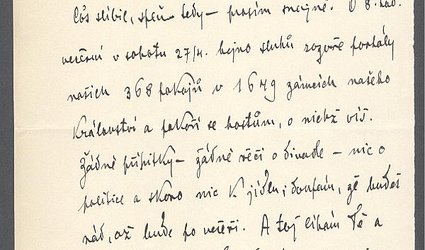 Cos slíbil, spěň tedy – prosím snažně. O 8. hod.
večerní v sobotu 27/4. hejno sluhů rozevře portály
našich 368 pokojů v 1649 zámcích našeho
Království a pokoří se hostům, o nichž víš.
Žádné přípitky – žádné řěči o divadle – nic o
politice a skoro nic k jídlu; doufám, že budeš
rád, až bude po večeři. A teď líbám Tě a